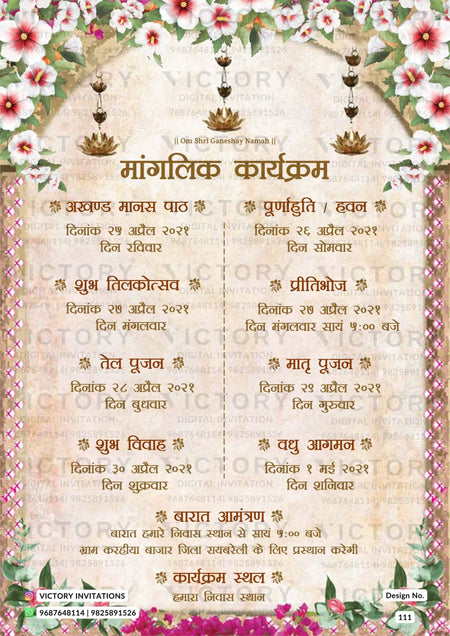 || Om Shri Ganeshay Namah ||
मांगलिक कार्यक्रम
अखण्ड मानस पाठ
दिनांक २५ अप्रैल २०२१
दिन रविवार
पूर्णाहुति / हवन
दिनांक २६ अप्रैल २०२१
दिन सोमवार
शुभ तिलकोत्सव
दिनांक २७ अप्रैल २०२१
दिन मंगलवार
प्रीतिभोज
दिनांक २७ अप्रैल २०२१
दिन मंगलवार सायं ५:०० बजे
तेल पूजन
दिनांक २८ अप्रैल २०२१
दिन बुधवार
मातृ पूजन
दिनांक २९ अप्रैल २०२१
दिन गुरुवार
शुभ विवाह
दिनांक ३० अप्रैल २०२१
दिन शुक्रवार
वधु आगमन
दिनांक १ मई २०२१
दिन शनिवार
बारात आमंत्रण
बारात हमारे निवास स्थान से सायं ५:०० बजे
ग्राम करहीया बाजार जिला रायबरेली के लिए प्रस्थान करेगी
कार्यक्रम स्थल
हमारा निवास स्थान
VICTORY INVITATIONS
9687648114 | 9825891526
Design No.
111
VICTORY
DIGITAL INVITATION
9687648114| 9825891526